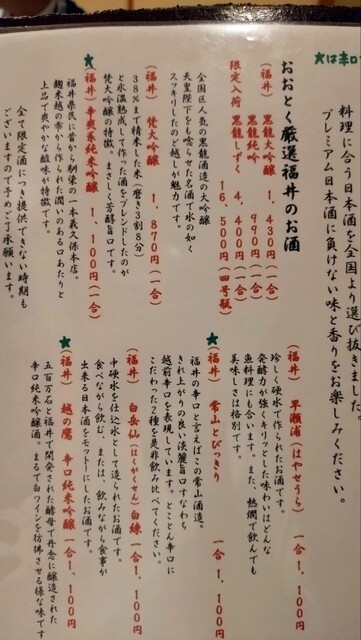 ★は辛口
料理に合う日本酒を全国より選び抜きました。
プレミアム日本酒に負けない味と香りをお楽しみください。
おおとく厳選福井のお酒
(福井) 黒龍大吟醸 1,430円(一合)
黒龍純吟 990円(一合)
限定入荷 黒龍しずく 4,400円(一合)
16,500円(四号瓶)
全国区人気の黒龍酒造の大吟醸
天皇陛下をも唸らせた名酒で水の如く
スッキリしたのど越しが魅力です。
(福井) 梵大吟醸 1,870円(一合)
38%まで精米した米(磨き3割8分)
と氷温熟成して作った酒をブレンドしたのが
梵大吟醸の特徴、まさしく芳醇旨口です。
★(福井) 辛爽系純米吟醸 1,100円(一合)
福井県民に昔から馴染の一本義久保本店。
麹米越の雫から作られた潤いのある口あたりと
上品で爽やかな酸味が特徴です。
全て限定酒につき提供できない時期も
ございますので予めご了承願います。
(福井) 早瀬浦(はやせうら) 一合1,100円
珍しく硬水で作られたお酒です。
発酵力に強くキリッとした味わいはどんな
魚料理にも合います。また、熱燗で飲んでも
美味しさは格別です。
★(福井) 常山とびっきり 一合1,100円
福井の辛口と言えばこの常山酒造。
きれ上がりの良い淡麗旨口すなわち
越前辛口を表現しています。とことん辛口に
こだわった2種を是非飲み比べてください。
(福井) 白岳仙(はくがくせん)白練 一合1,100円
中硬水を仕込み水として造られたお酒です。
食べながら飲む、または、飲みながら食事が
出来る日本酒をモットーにしたお酒です。
★(福井) 越の鷹 辛口純米吟醸 一合1,100円
五百万石と福井で開発された酵母で丹念に醸造された
辛口純米吟醸酒。まるで白ワインを彷彿させる様な味です